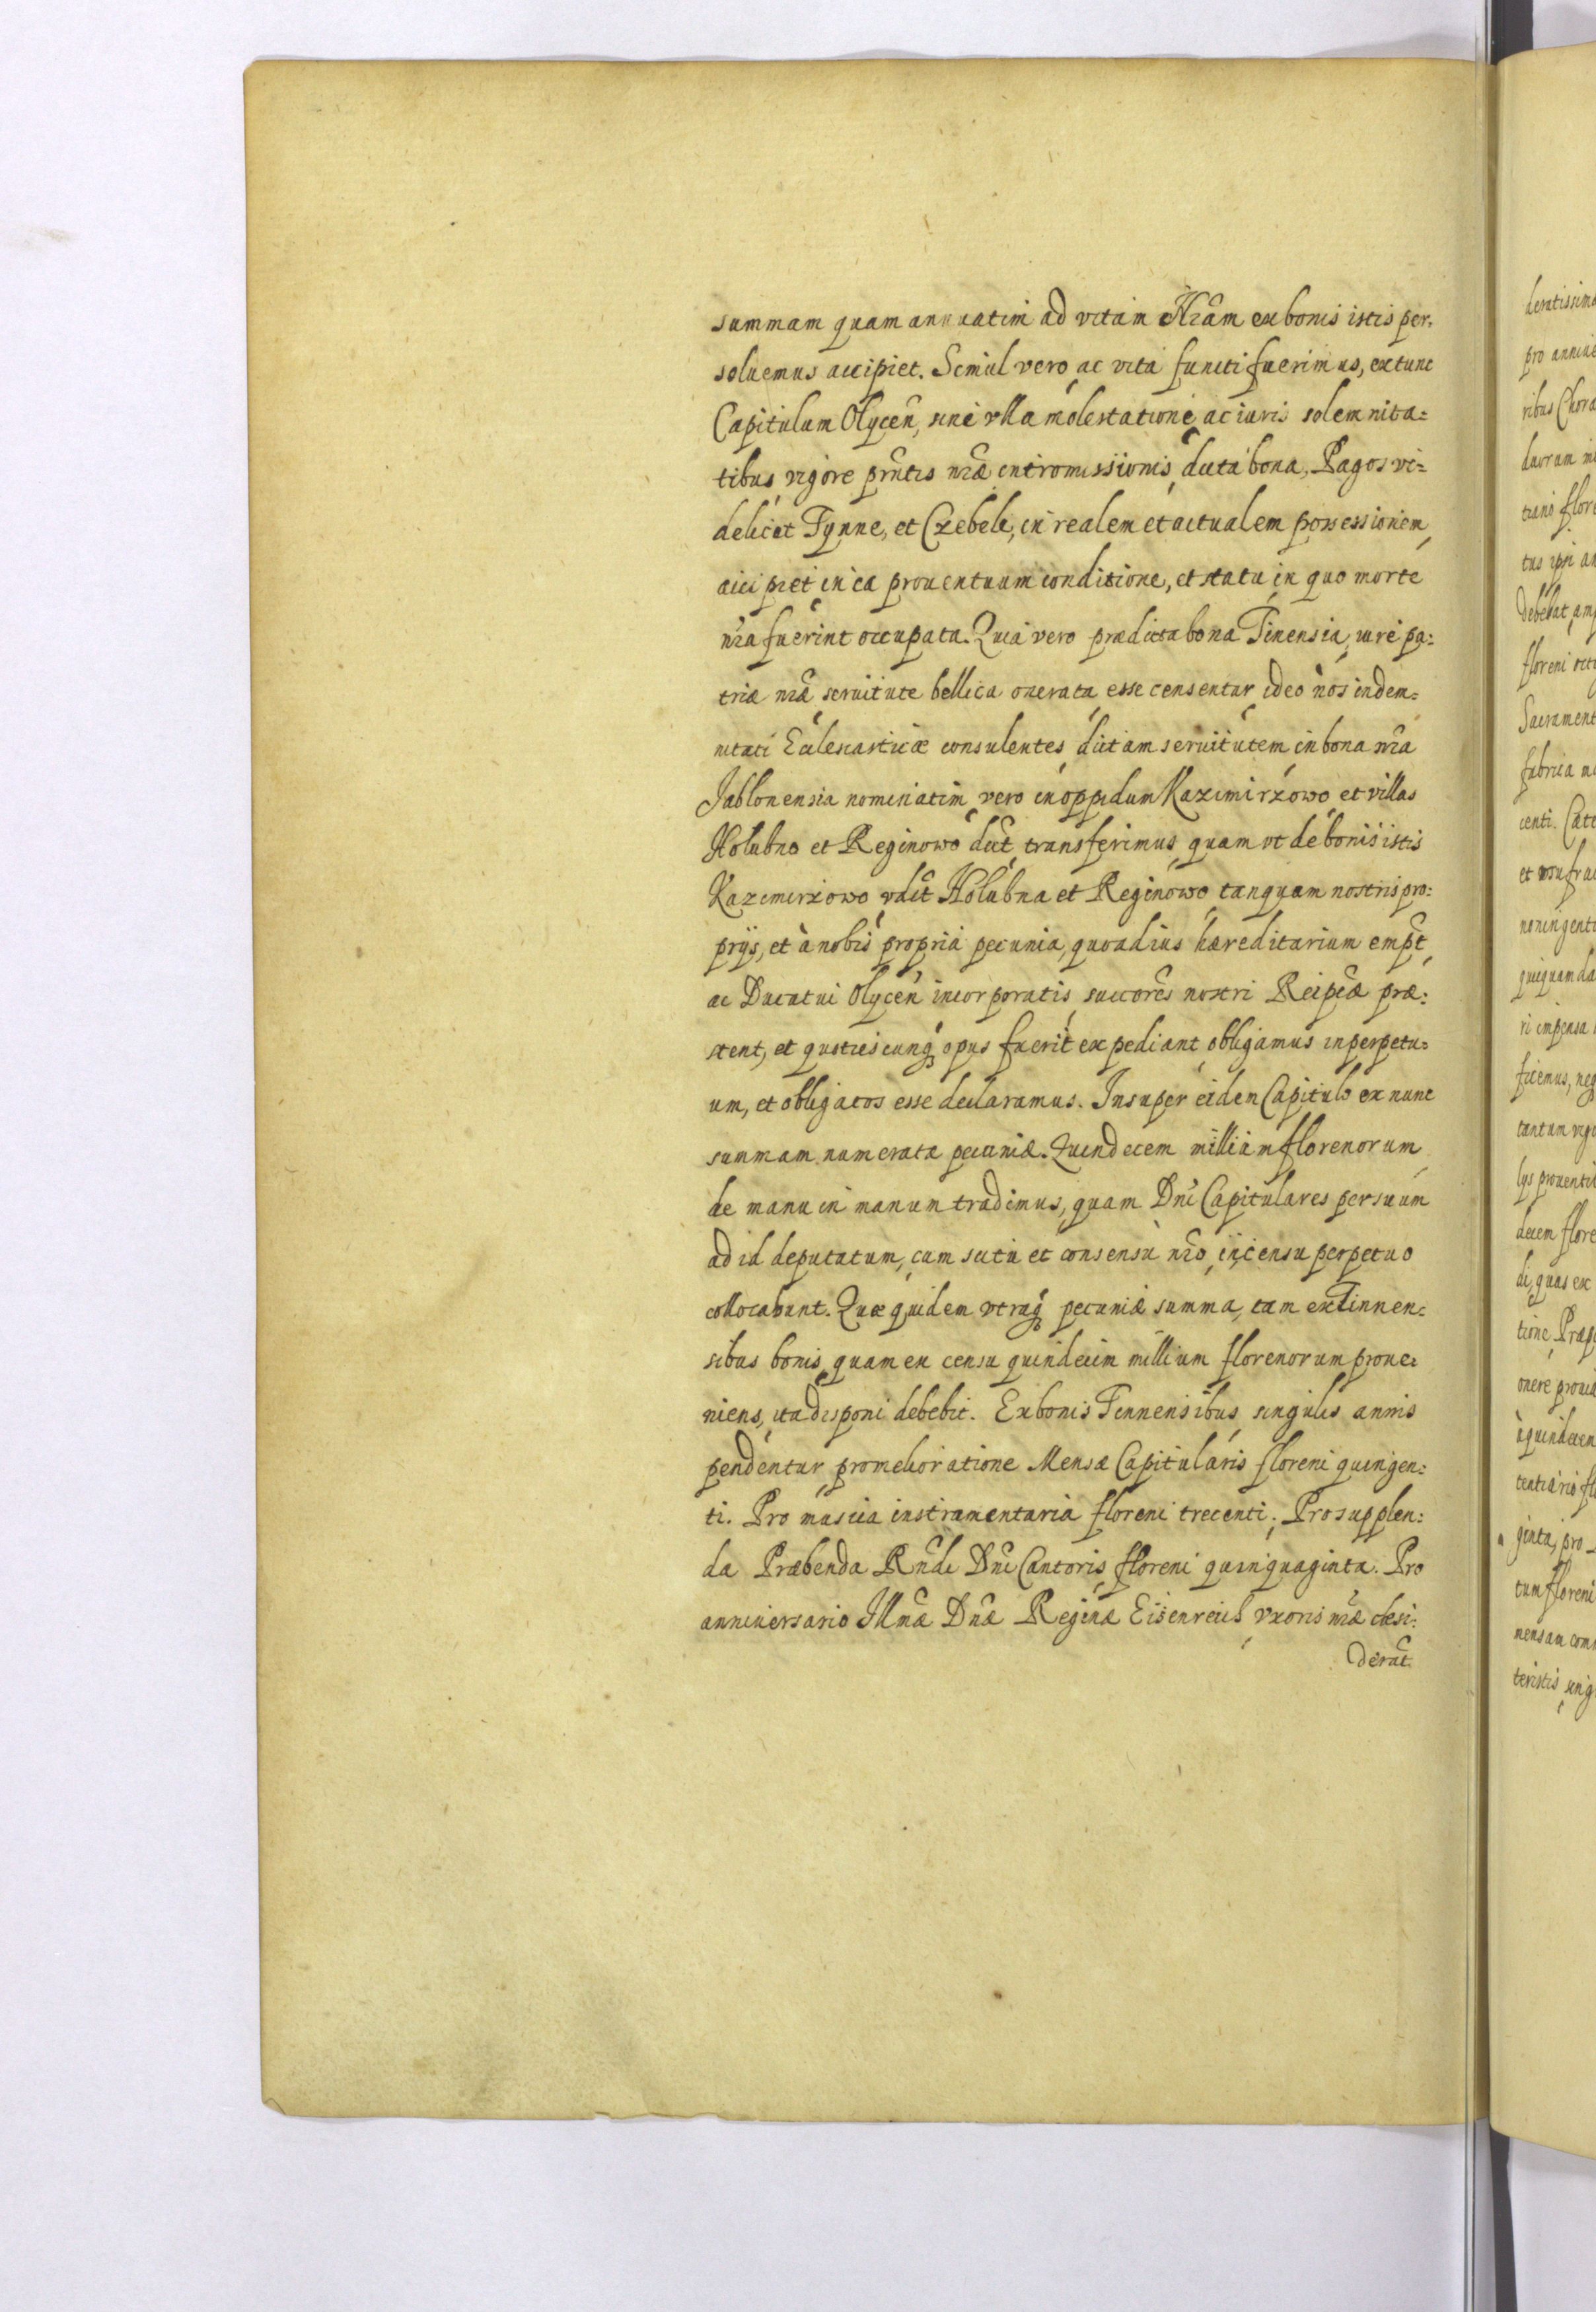 summam quam annuatim ad vitam Nr̃am ex bonis istis per-
soluemus accipiet. Simul vero, ac vita functi fuerimus, extunc
Capitulum Olycen̄, sine vlla molestatione, ac iuris solemnita=
tibus, vigore prn̄tis nr̃æ intromissionis, dicta bona, Pagos vi=
delicet Tynne, et Czebele, in realem et actualem possessionem,
accipiet in ea prouentuum conditione, et statu, in quo morte
nr̃a fuerint occupata. Quia vero prædicta bona Tinensia, iure pa=
triæ nr̃æ seruitute bellica onerata, esse censentur, ideo nos indem=
nitati Ecclesiasticæ consulentes, dictam seruitutem, in bona nr̃a
Jablonensia nominatim vero in oppidum Kazimirzowo, et villas
Holubno et Reginowo dict̃, transferimus, quam vt de bonis istis
Kazimirzowo, vdlt̃ Holubna et Reginowo, tanquam nostris pro=
prijs, et à nobis propria pecunia, quoad ius hæreditarium empt̃,
ac Ducatui Olycen̄ incorporatis, succorẽs nostri Reipcæ̃ præ=
stent, et quotiescunq; opus fuerit expediant, obligamus in perpetu=
um, et obligatos esse declaramus. Insuper eidem Capitulo ex nunc
summam numeratæ pecuniæ. Quindecem milliam florenorum,
de manu in manum tradimus, quam Dn̄i Capitulares per suum
ad id deputatum, cum scitu et consensu nr̃o, in censu perpetuo
collocabunt. Quæ quidem vtraq; pecuniæ summa, tam ex Tinnen=
sibus bonis, quam ex censu quindecim millium florenorum proue=
niens, ita disponi debebit. Ex bonis Tinnensibus, singulis annis
pendentur, pro melioratione Mensæ Capitularis floreni quingen=
ti. Pro musica instramentaria floreni trecenti. Pro supplen=
da Præbenda Rn̄di Dn̄i Cantoris, floreni quinquaginta. Pro
anniuersario Illmæ̃ Dn̄æ Reginæ Eisenreich, vxoris nr̃æ desi=
derat̃.
leratissimæ
pro anniue
ribus Chora
tus ipsi
debebat, am
floreni octi
Sacrament
fabrica
centi.
et
noningenti
quiquam da
ri impensa
ficemus, neq
tantum vigo
lys prouenti
decem flore
di, quas ex
tione, Præp
onere
quindecem
ginta, pro
tum floreni
mensam com
teristis, sing